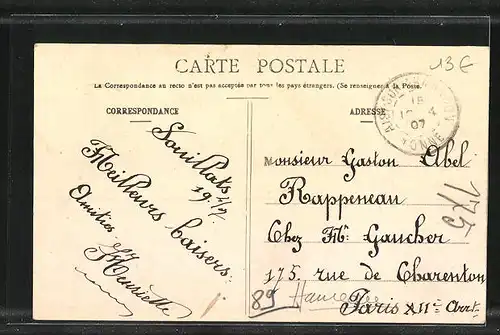 13€
CARTE POSTALE
La Correspondance au recto n'est pas acceptée par tous les pays étrangers. (Se renseigner à la Poste.)
CORRESPONDANCE
ADRESSE
YONNE
07
Meilleurs baisers.
Amitiés
Henriette
Monsieur Gaston Abel
Rappeneau
Chez Mr. Gaucher
175, rue de Charenton
Paris XIIe Arrt.
89
175